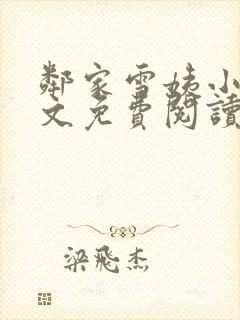 鄰家雪姨小
文免費閱讀
梁飛杰